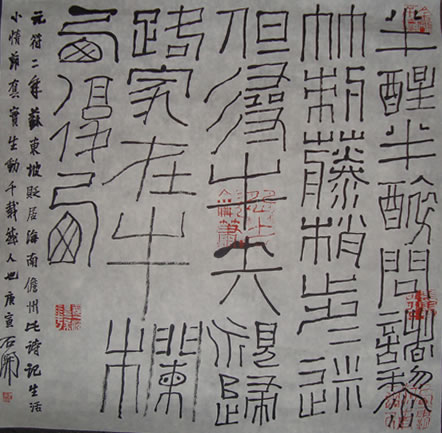 半醒半醉問諸黎
竹刺藤梢步〻迷
但尋牛矢覓歸
路家在牛欄
西復西
元符二年蘇東坡貶居海南儋州此詩記生活
小情 實生動千載 人也庚寅石開